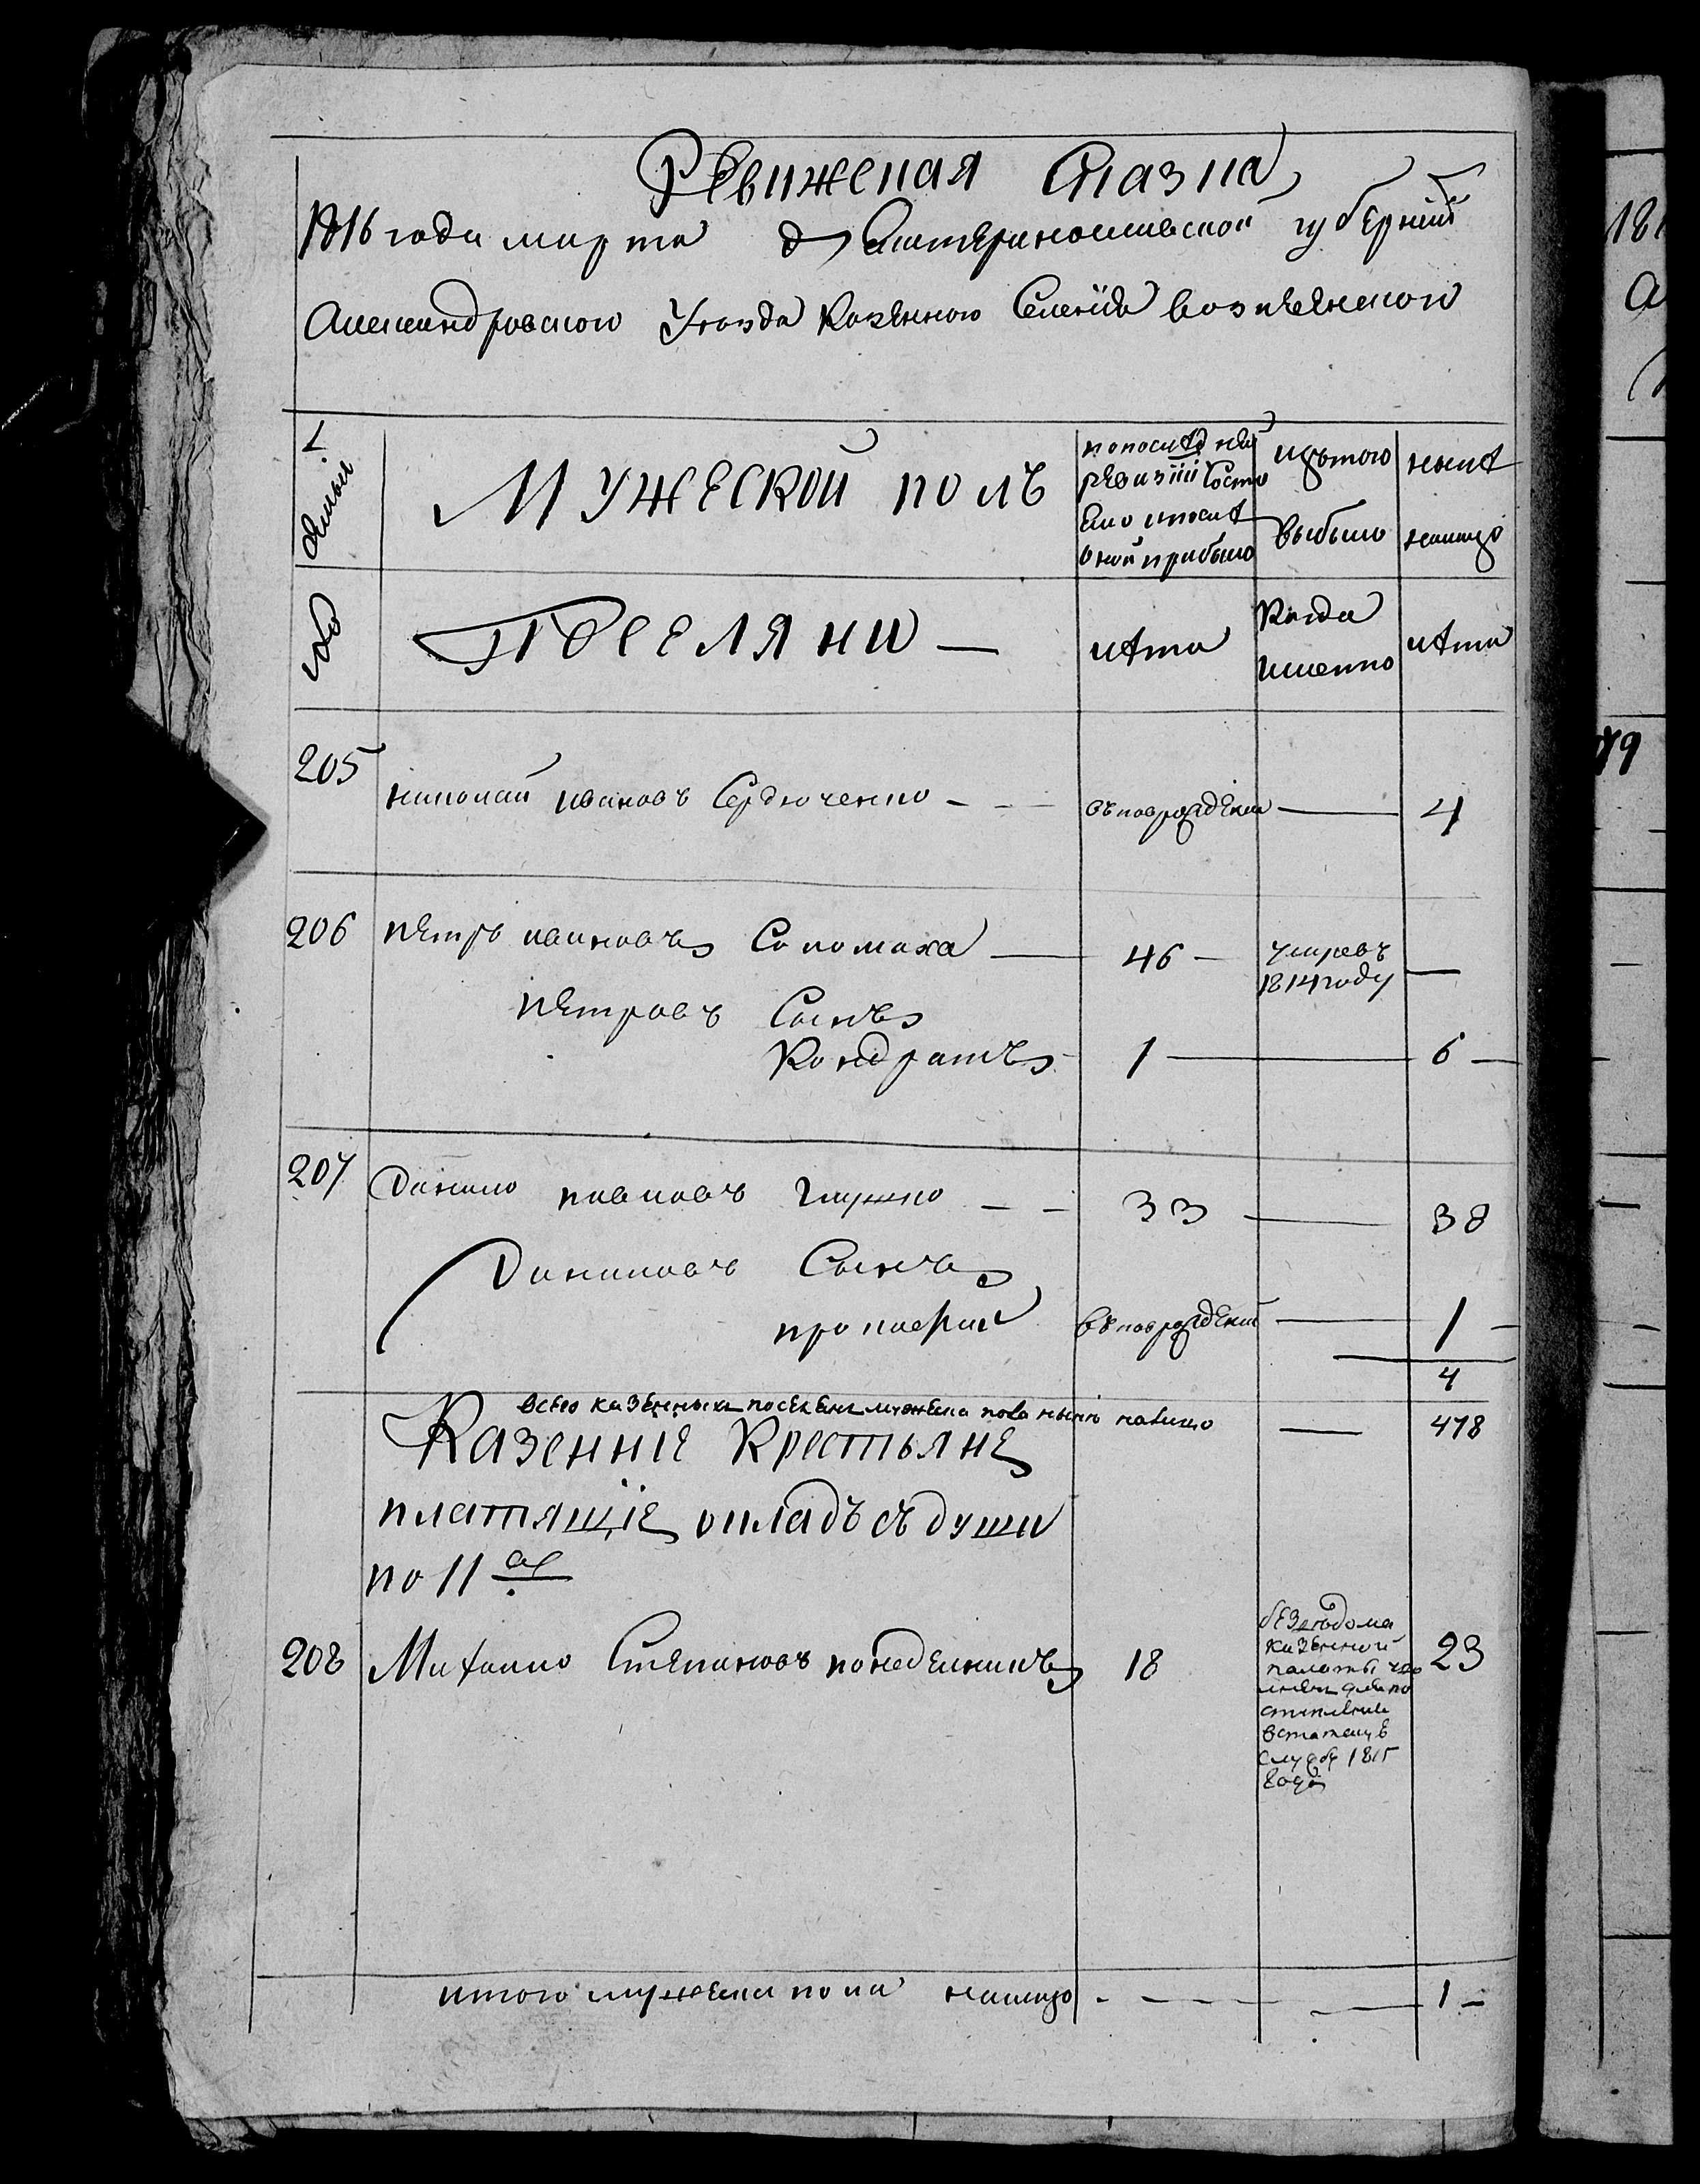 Ревижская Сказка
1816 года марта д Екатеринославской губернии
Александровского Уезда Казенного Селения вознесенского
семьи
Мужеской полъ
попоследней ревизiи Состояло ипосле оной прибыло
изътого выбыло
ныне налицо
Поселяни —
лѣта
Когда именно
лѣта
205 николай ивановъ Сердюченко — въноврождени — 4
206 петръ ивановъ Соломаха — 46 — умревъ 1814 году —
петровъ Сынъ
Кондратъ 1 — 6 —
207 Данило павловъ Глушко — — 33 — 38
Даниловъ Сынъ
прокофий въноврождений — 1 —
4
всего казенныхъ поселенъ мужеска пола ныне налицо — 478
Казеннiе Крестьяне
платящiе окладъ съ души
по 11
208 Михайло Степановъ понеделникъ 18 безведома казенной палаты вступление встатскую службу 1815 года 23
итого мужеска пола налицо - - - — 1 —
181
А
79